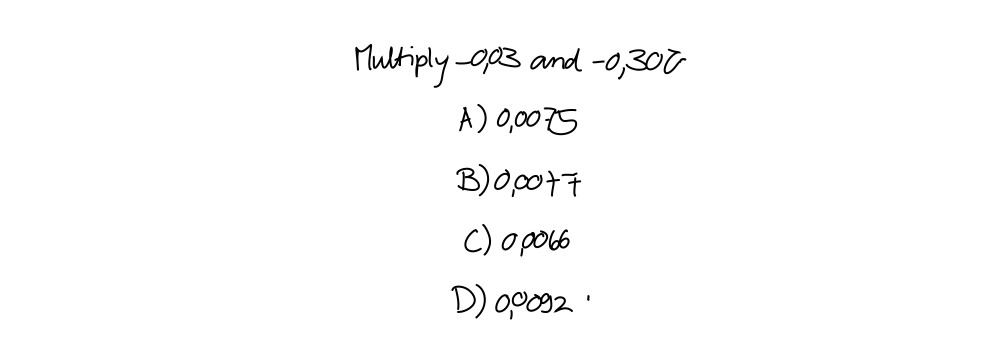 Multiply -0,03 and -0,307
A) 0,0075
B) 0,0077
C) 0,0066
D) 0,0092